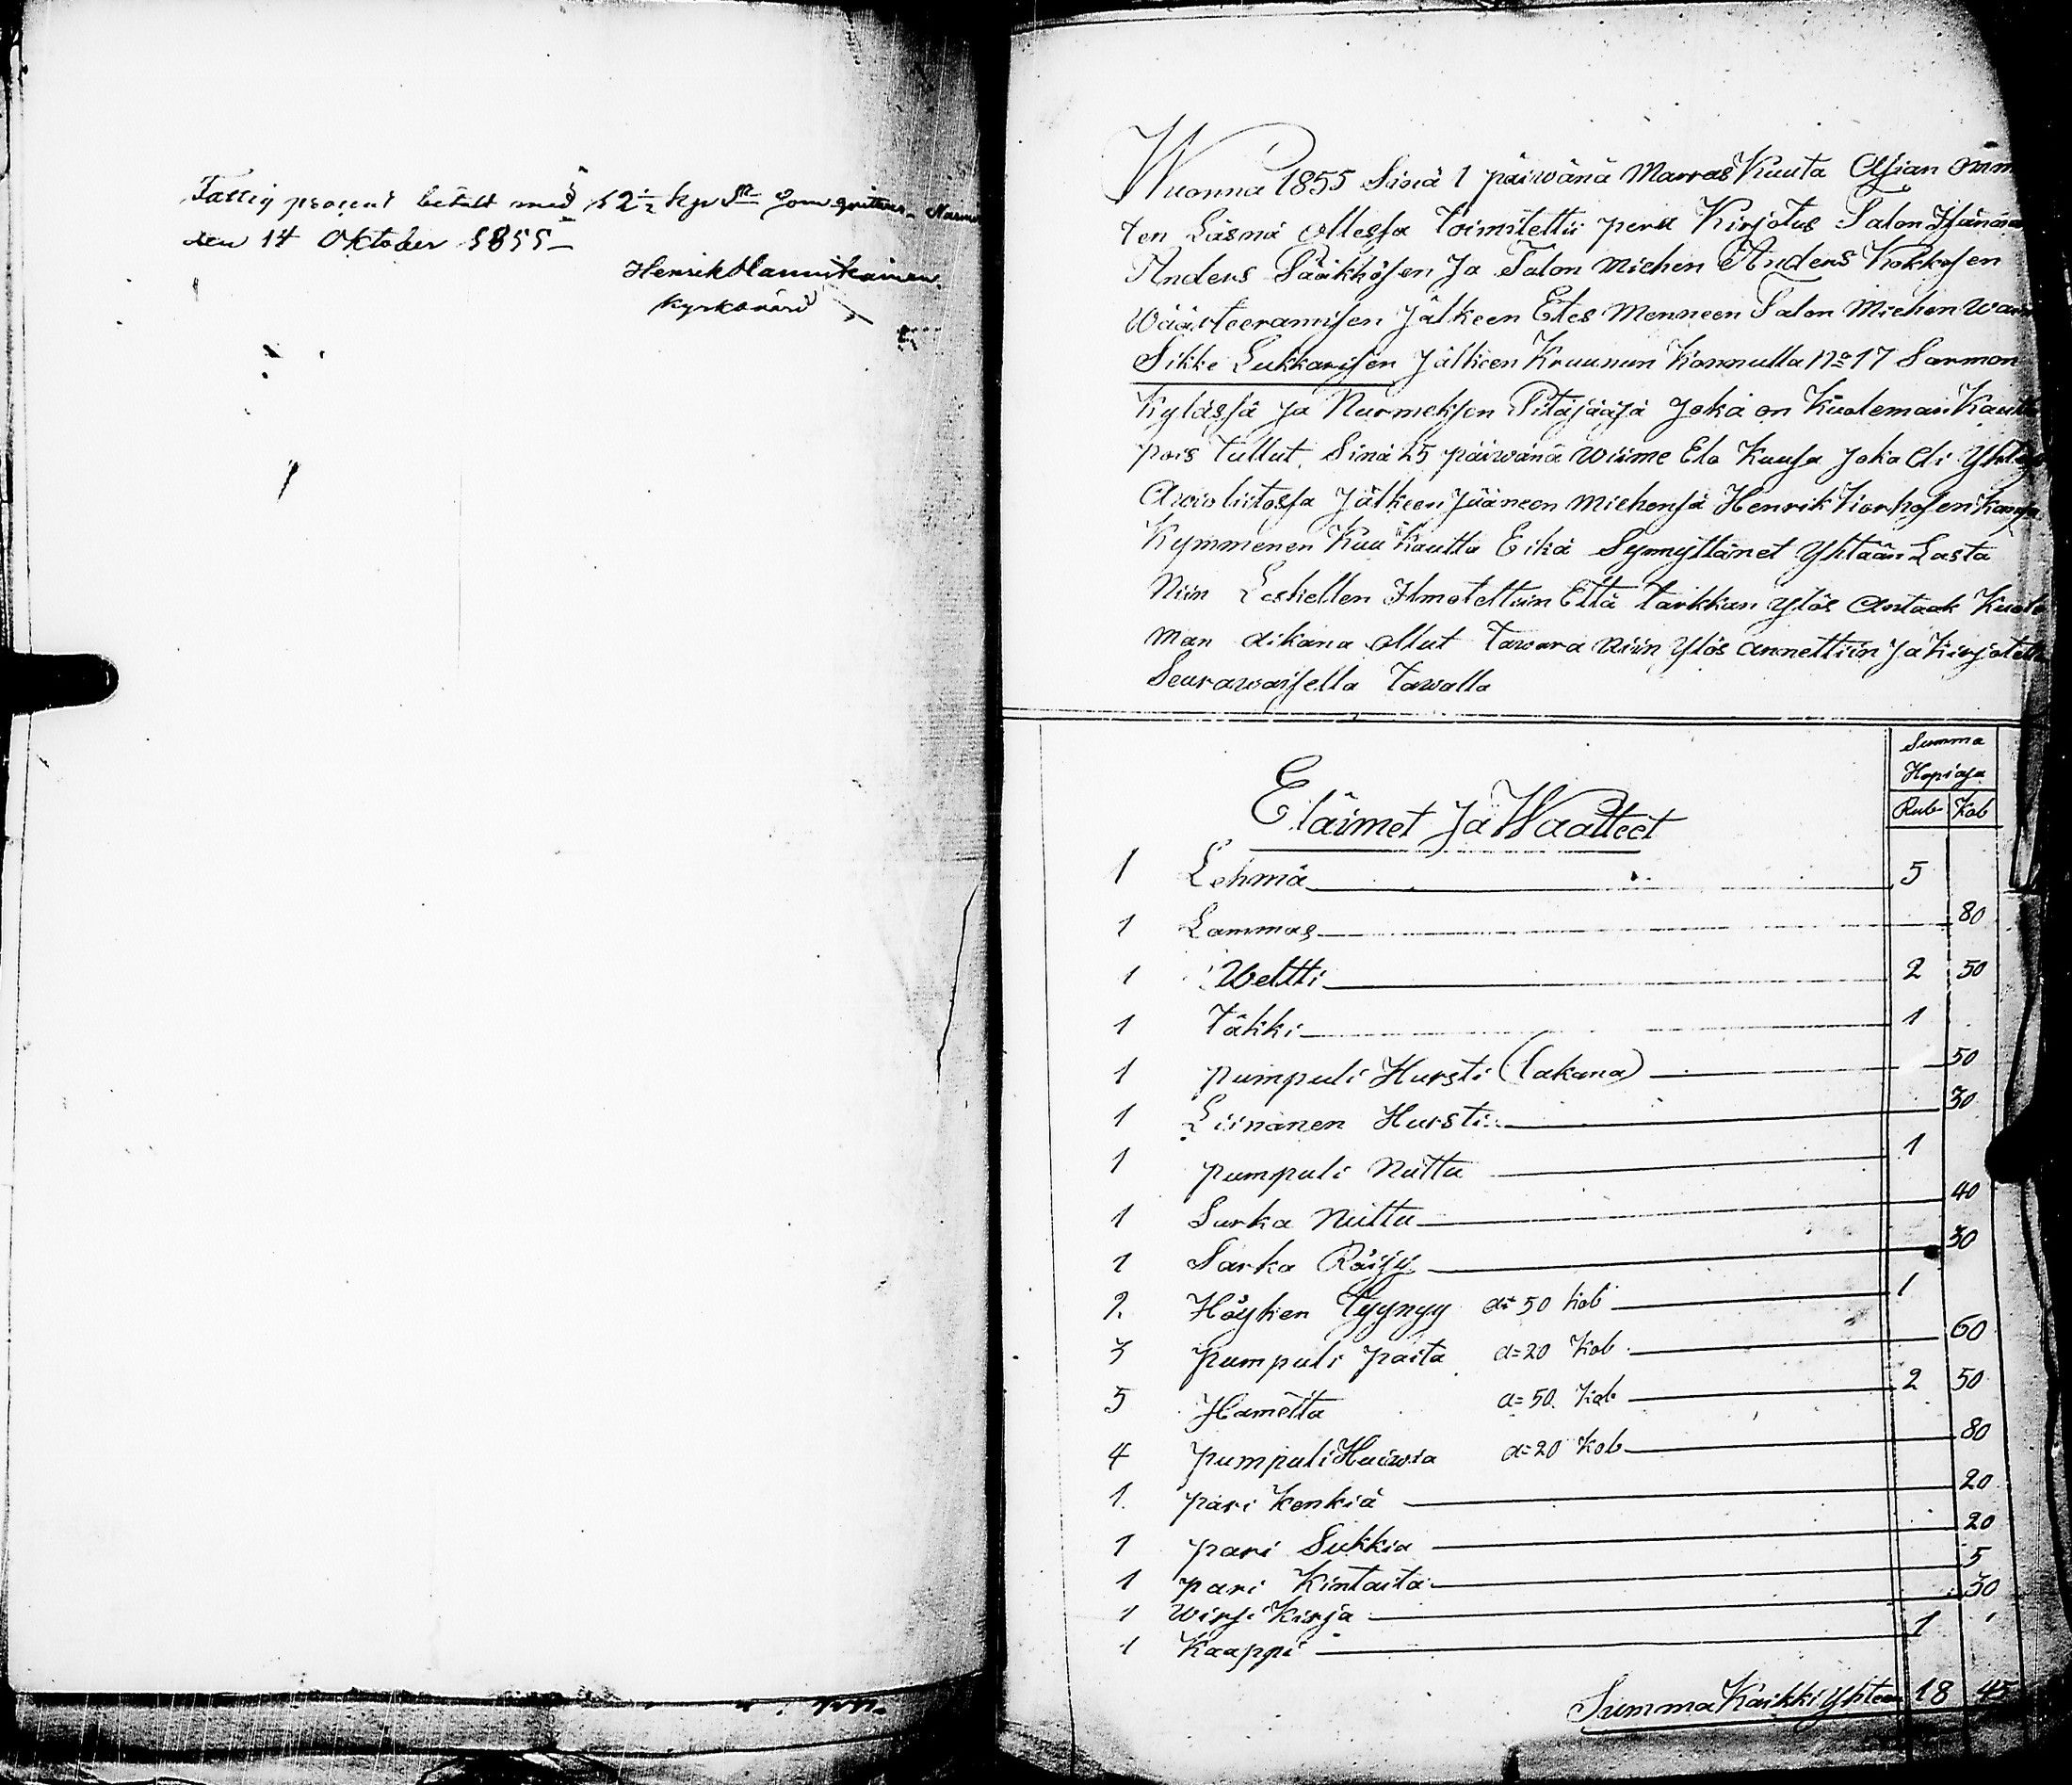 Fattig procent betalt med 12½ kop Sr som qvitteras
den 14 Oktober 1855
Henrik Hannikainen
kyrkovärd
Wuonna 1855 Sinä 1 päiwänä Marras Kuuta Asian
ten Läsnä ollessa toimitettii peru Kirjotus Talon
Anders Ja Talon Miehen Anders Kokkosen
Wäärteeramisen Jälkeen Edes Menneen Talon Miehen
Sikke Lukkarisen Jälkeen Kruunun Konnulla No 17 Sarmon
Kylässä ja Nurmeksen Pitäjääsä Joka on Kuoleman Kautta
pois tullut Sinä 25 päiwänä wiime Elo Kuusa Joka oli
Awioliitossa Jälkeen Jääneen Miehensä Henrik Korhosen Kansa
Kymmenen Kuu Kautta Eikä Synnyttänet Yhtään Lasta
Niin Leskellen Ilmotettiin Että tarkkan ylös Antaak Kuole
man Aikana ollut Tawara Niin Ylös annettiin Ja Kirjotetti
Seurawaisella tawalla
Summa
Hopiasa
Rub Kob
Eläimet Ja Waatteet
1 Lehmä 5
1 Lammas 80
1 Weltti 2 50
1 Täkki 1
1 pumpuli Hursti (lakana) 50
1 Liinanen Hursti 30
1 pumpuli Nuttu 1
1 Sarka Nuttu 40
1 Sarka Röijy 30
2 Höyhen Tyynyy a= 50 Kob 1
3 pumpuli paita a=20 Kob 60
5 Hametta a=50 Kob 2 50
4 pumpuli Huiwia a=20 Kob 80
1 pari Kenkiä 20
1 pari Sukkia 20
1 pari Kintaita 5
1 wirsi Kirja 30
1 Kaappi 1
Summa Kaikki Yhteen 18 45